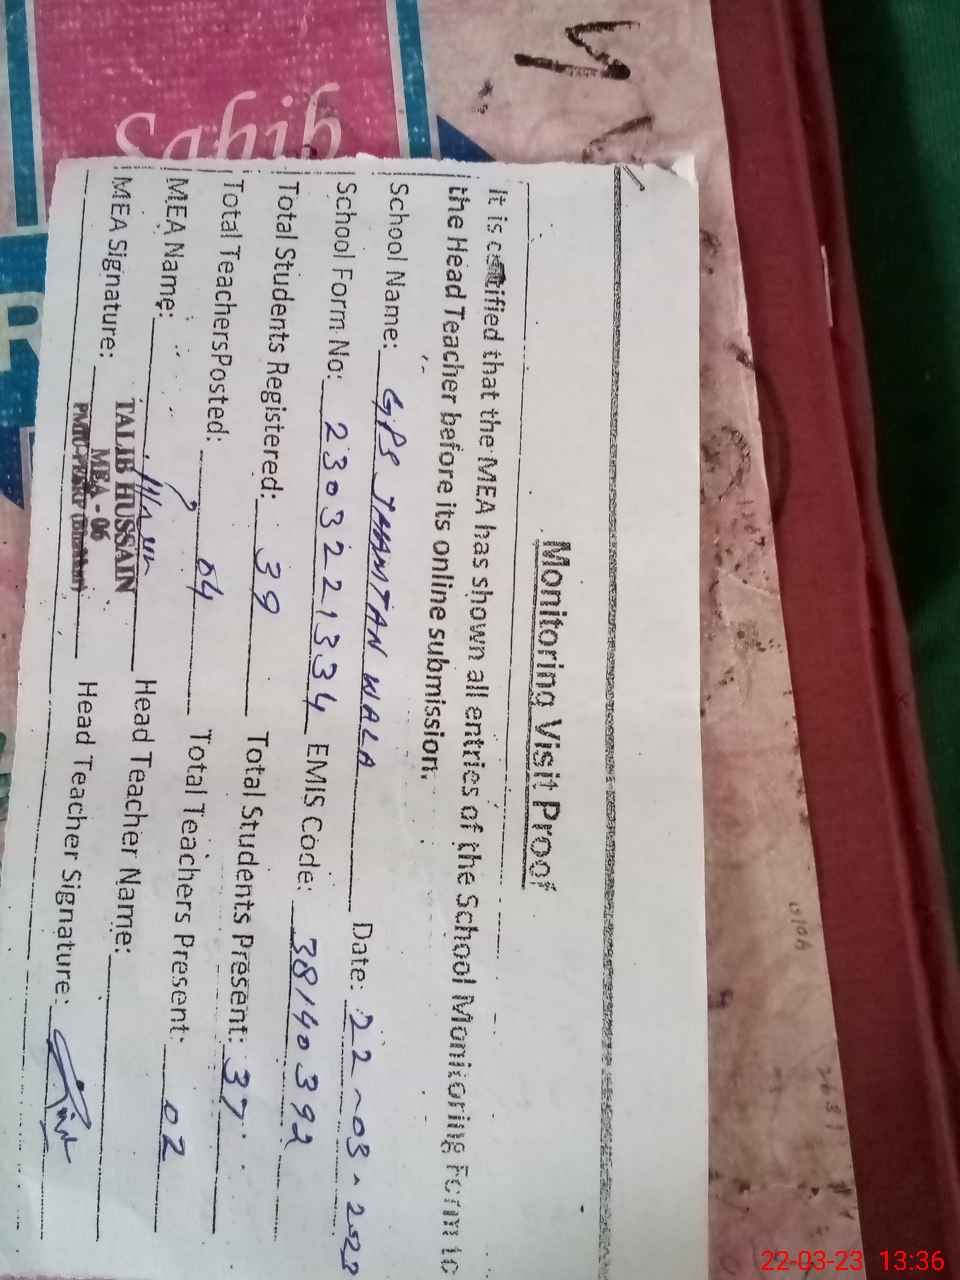 Sahib
Monitoring Visit Proof
It is certified that the MEA has shown all entries of the School Monitoring Form to
the Head Teacher before its online submission.
School Name: GPS THANTAN WALA Date: 22-03-2023
School Form No: 2303221334 EMIS Code: 38140392
Total Students Registered: 39 Total Students Present: 37
Total TeachersPosted: 04 Total Teachers Present: 02
MEA Name: Head Teacher Name:
TALIB HUSSAIN
MEA Signature: Head Teacher Signature:
MEA - 06
22-03-23 13:36